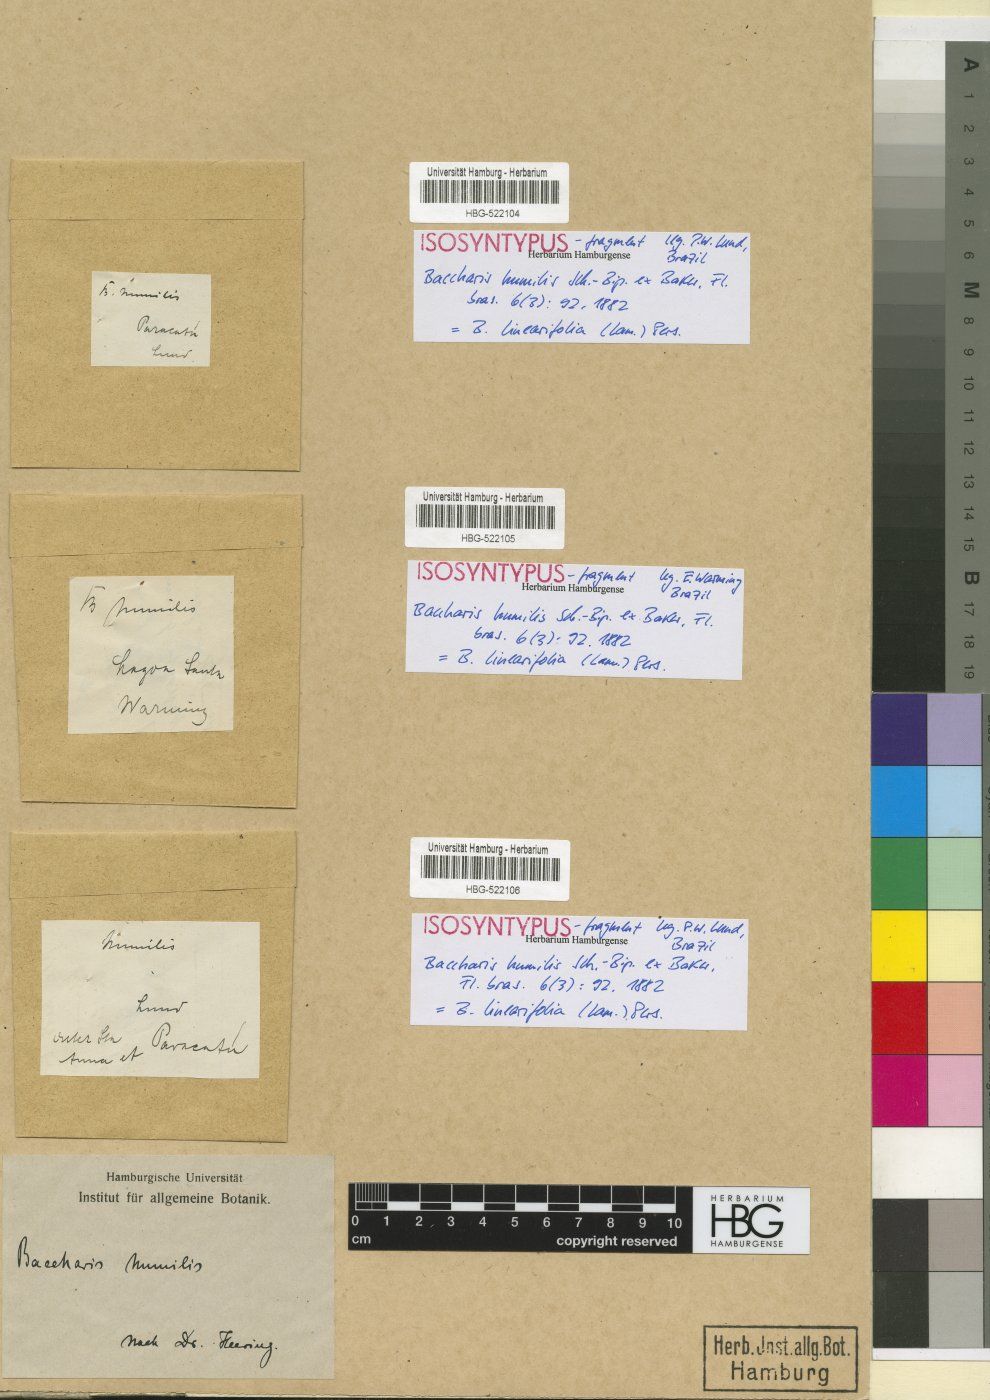 Universität Hamburg - Herbarium
HBG-522104
ISOSYNTYPUS - fragment leg. P.W. Lund,
Herbarium Hamburgense Brazil
Baccharis humilis Sch.-Bip. ex Baker, Fl.
bras. 6(3): 92. 1882
= B. linearifolia (Lam.) Pers.
B. humilis
Paracatú
Lund
Universität Hamburg - Herbarium
HBG-522105
ISOSYNTYPUS - fragment leg. E. Warming
Herbarium Hamburgense Brazil
Baccharis humilis Sch.-Bip. ex Baker, Fl.
bras. 6(3): 92. 1882
= B. linearifolia (Lam.) Pers.
B humilis
Lagoa Santa
Warming
Universität Hamburg - Herbarium
HBG-522106
ISOSYNTYPUS - fragment leg. P.W. Lund,
Herbarium Hamburgense Brazil
Baccharis humilis Sch.-Bip. ex Baker,
Fl. bras. 6(3): 92. 1882
= B. linearifolia (Lam.) Pers.
humilis
Lund
inter Sta
Anna et Paracatú
Hamburgische Universität
Institut für allgemeine Botanik.
Baccharis humilis
nach Dr. Heering.
0 1 2 3 4 5 6 7 8 9 10
cm copyright reserved
HERBARIUM
HBG
HAMBURGENSE
Herb. Inst. allg. Bot.
Hamburg
A 1 2 3 4 5 6 M 8 9 10 11 12 13 14 15 B 17 18 19